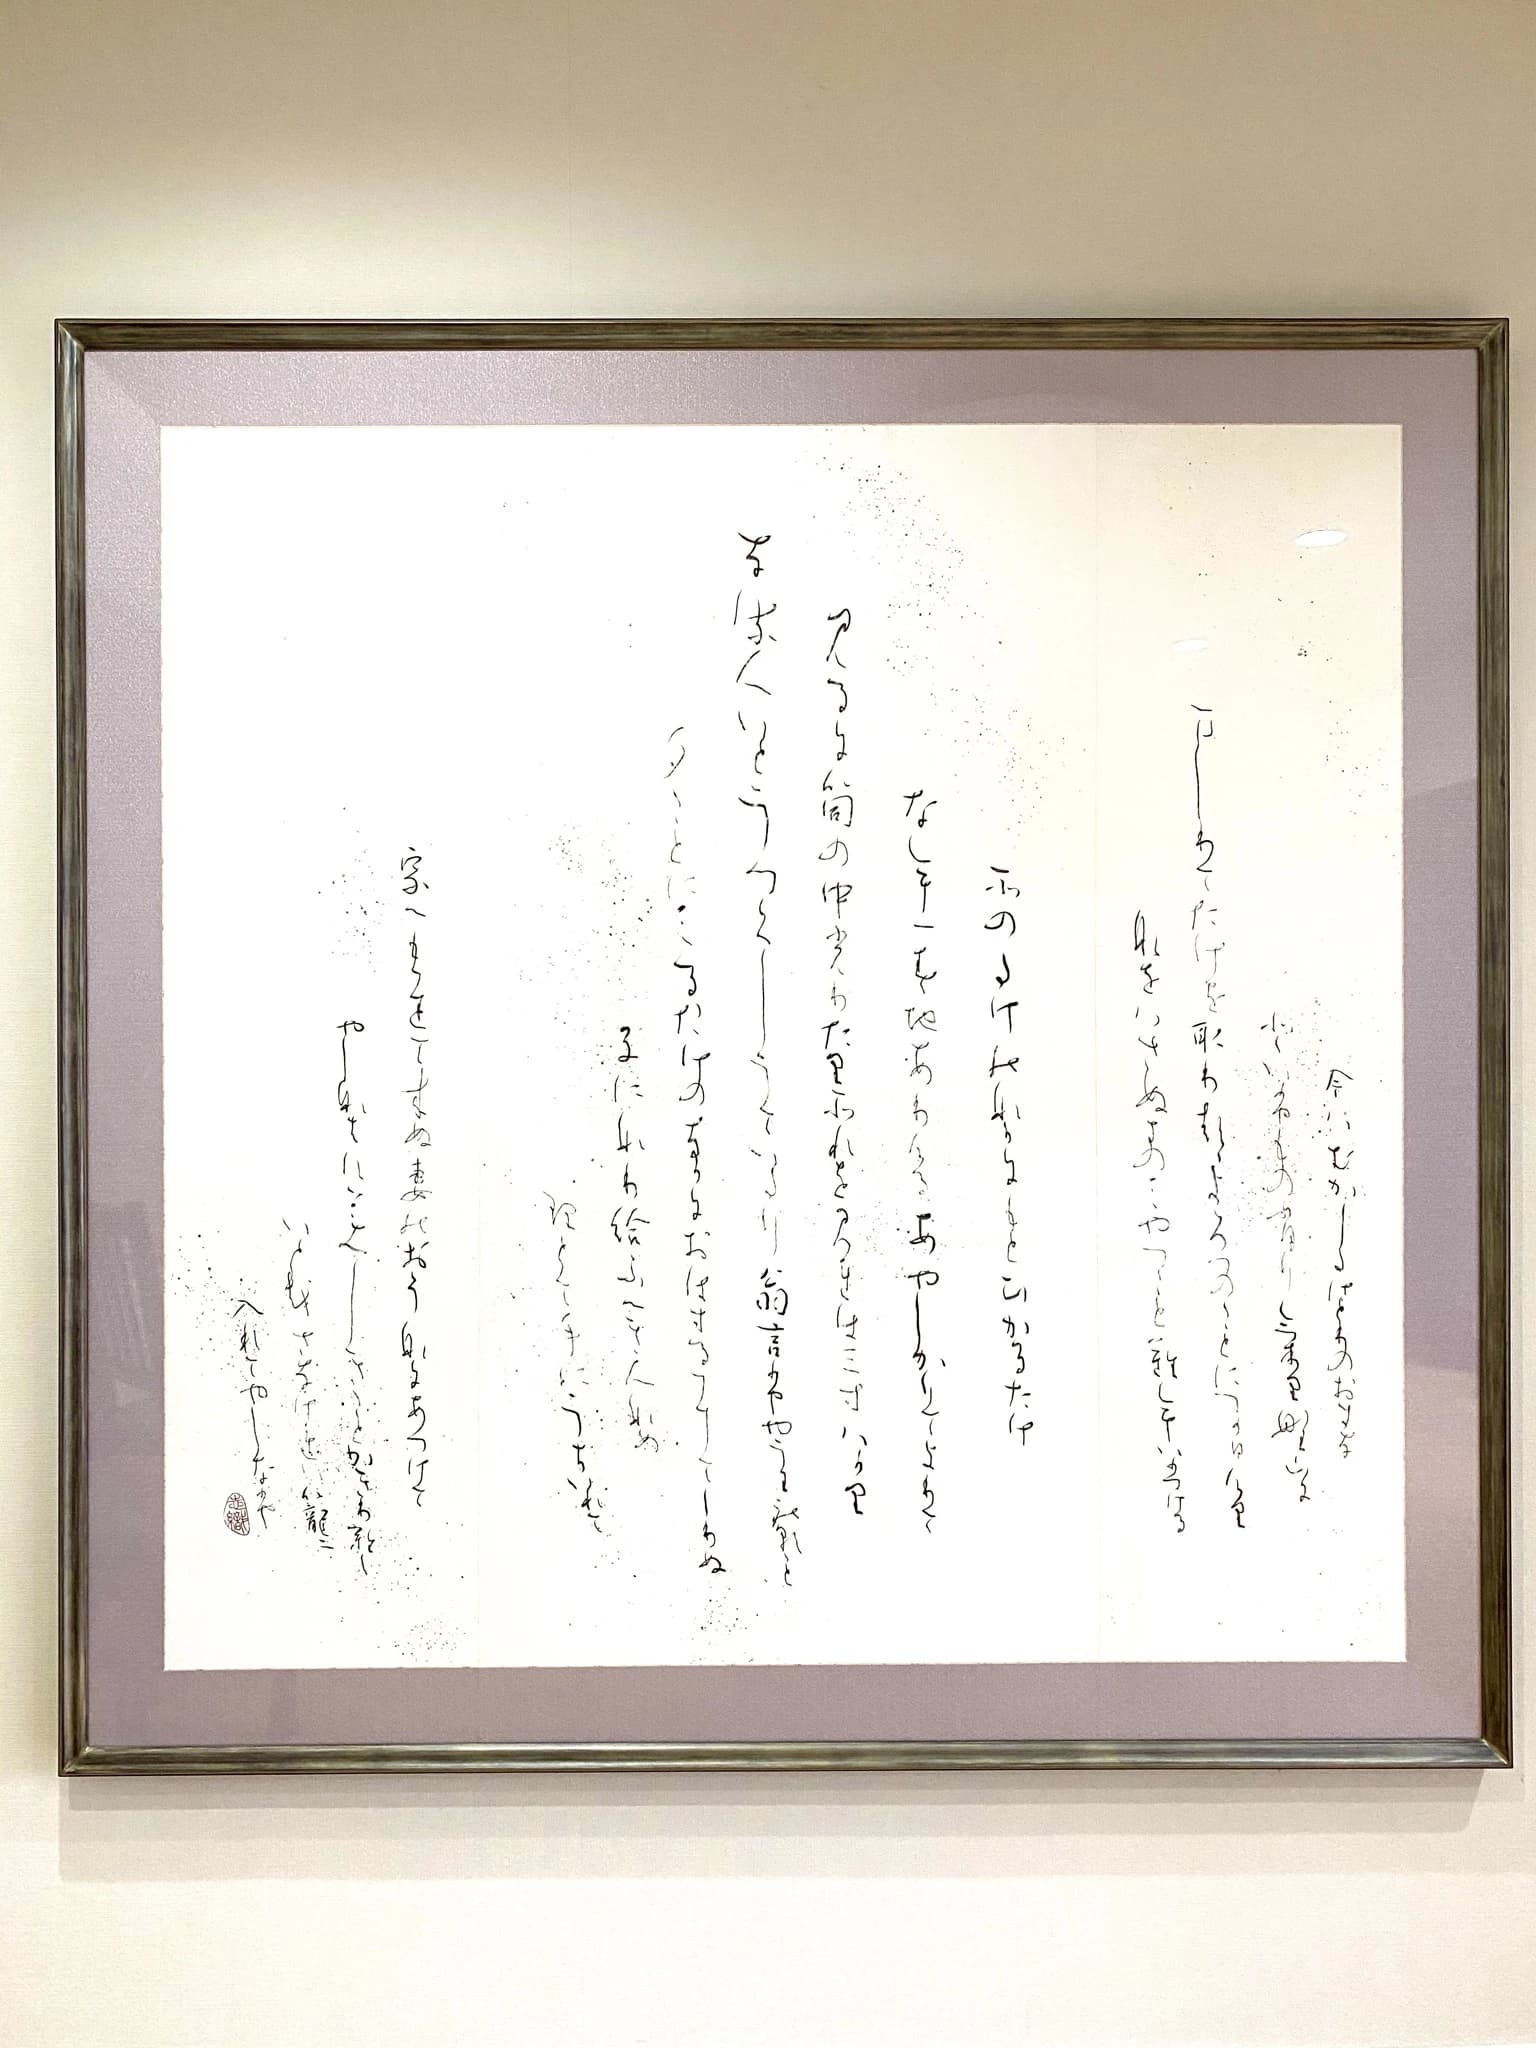 今はむかしたけとりのおきな
といふものありけり野山に
ましりてたけを取りつつよろつのことにつかひけり
名をはさぬきのみやつことなむいひける
そのたけのなかにもと光るたけ
なむ一すちありけるあやしかりてよりて
見るに筒の中光りたりそれを見れは三寸はかり
なる人いとうつくしうてゐたり翁言ふやうわれ朝こと
夕ことに見るたけの中におはするにてしりぬ
子になり給ふへき人なめ
りとて手にうち入れて
家へもちて来ぬ妻のおうなにあつけて
やしなはすうつくしきことかきりなし
いとをさなけれは籠に
入れてやしなふ